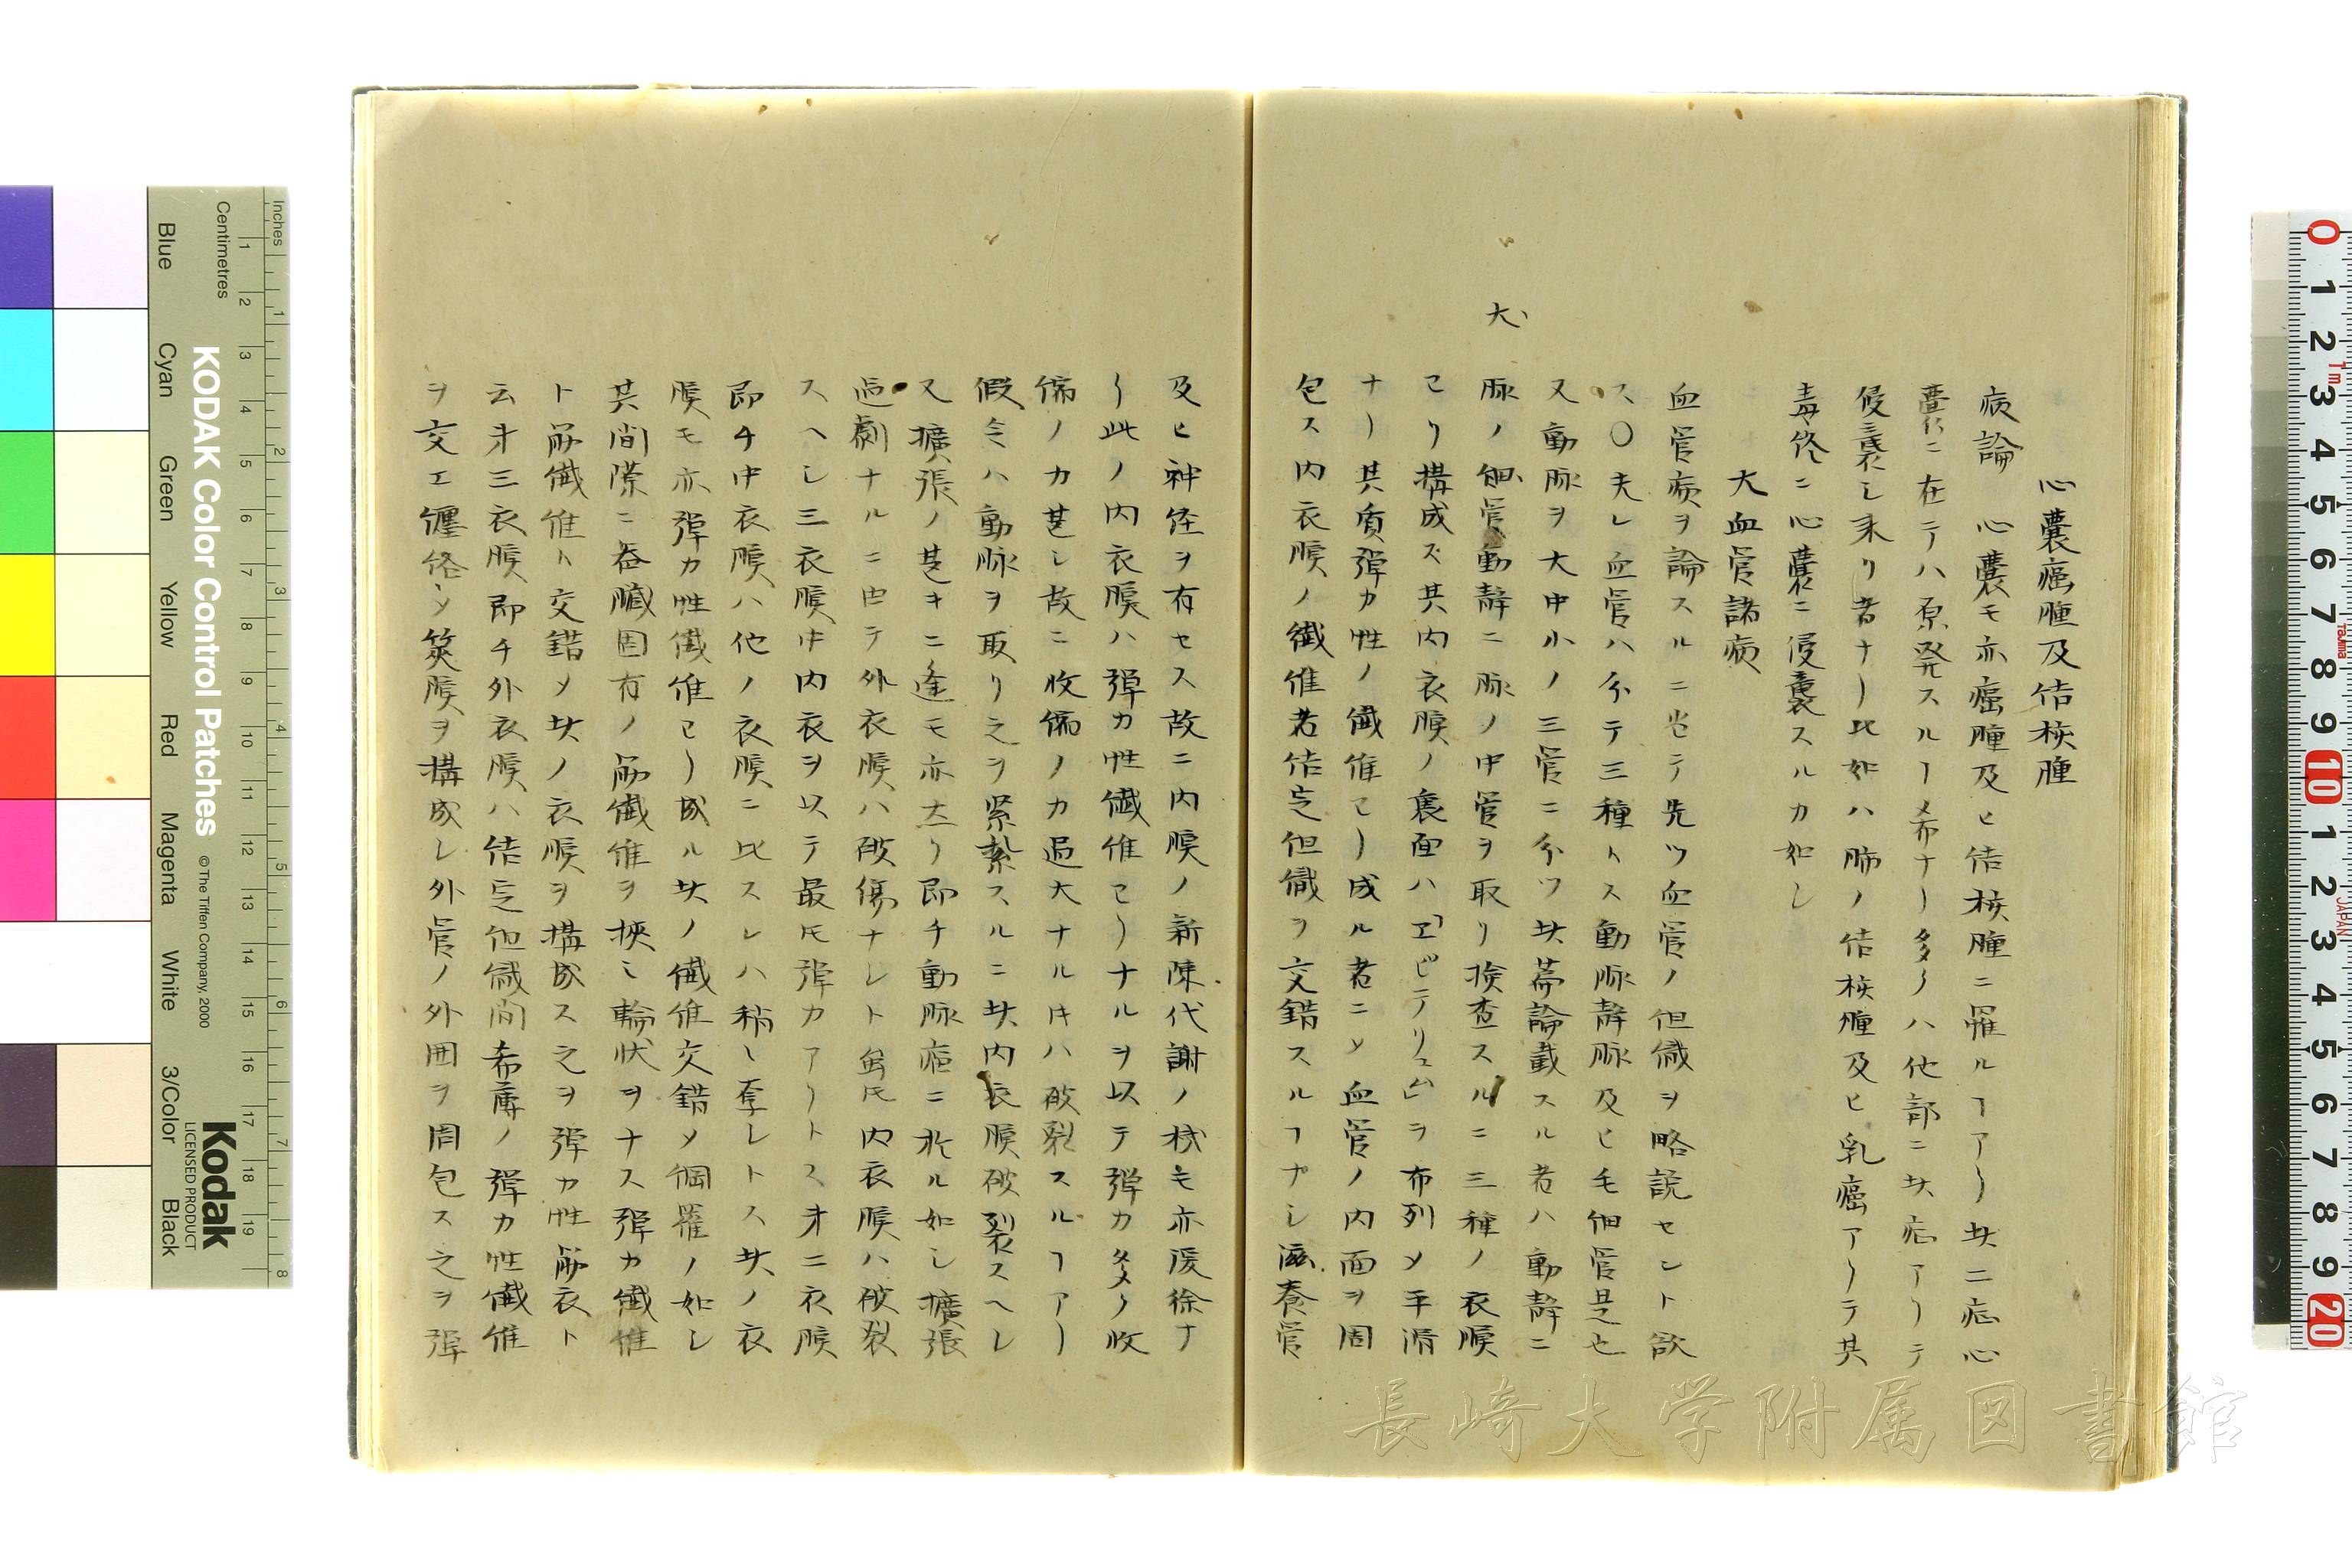 心嚢癌腫及結核腫
病論 心嚢モ亦癌腫及ヒ結核腫ニ罹ルヿアリ其ニ症心
嚢ニ在テハ原発スルヿ希ナリ多クハ他部ニ其症アリテ
侵襲シ来ル者ナリ比如ハ肺ノ結核腫及ヒ乳癌アリテ其
毒終ニ心嚢ニ侵襲スルカ如シ
大血管諸病
血管病ヲ論スルニ当テ先ツ血管ノ組織ヲ略説セント欲
ス〇夫レ血管ハ分テ三種トス動脈静脈及ヒ毛細管是也
又動脈ヲ大中小ノ三管ニ分ツ其篇論載スル者ハ動静ニ
大
脈ノ細管動静ニ脈ノ中管ヲ取リ検査スルニ三種ノ衣膜
ヨリ構成ス其内衣膜ノ裏面ハ「エピテリュム」ヲ布列〆平滑
ナリ其質弾力性ノ繊維ヨリ成ル者ニ〆血管ノ内面ヲ周
包ス内衣膜ノ繊維者結定組織ヲ交錯スルヿナシ滋養管
及ヒ神経ヲ有セス故ニ内膜ノ新陳代謝ノ機モ亦緩徐ナ
リ此ノ内衣膜ハ弾力性繊維ヨリナルヲ以テ弾力多ク收
縮ノ力甚シ故ニ收縮ノ力過大ナル片ハ破裂スルヿアリ
假令ハ動脈ヲ取リ之ヲ緊紮スルニ其内衣膜破裂スヘシ
又擴張ノ甚キニ逢モ亦然リ即チ動脈瘤ニ於ル如シ擴張
過劇ナルニ由テ外衣膜ハ破傷ナシト雖𪜈内衣膜ハ破裂
スヘシ三衣膜中内衣ヲ以テ最𪜈弾力アリトス才二衣膜
即チ中衣膜ハ他ノ衣膜ニ比スレハ稍〻厚シトス其ノ衣
膜モ亦弾力性繊維ヨリ成ル其ノ繊維交錯〆網羅ノ如シ
其間隙ニ各臓固有ノ筋繊維ヲ挾ミ輪状ヲナス弾力繊維
ト筋繊維ト交錯〆其ノ衣膜ヲ構成ス之ヲ弾力性筋衣ト
云才三衣膜即チ外衣膜ハ結定組織間希薄ノ弾力性繊維
ヲ交エ纒絡〆筴膜ヲ構成シ外管ノ外囲ヲ周包ス之ヲ弾
Inches
Centimetres
KODAK Color Control Patches
© The Tiffen Company, 2000
Kodak
LICENSED PRODUCT
Blue
Cyan
Green
Yellow
Red
Magenta
White
3/Color
Black
長崎大学附属図書館